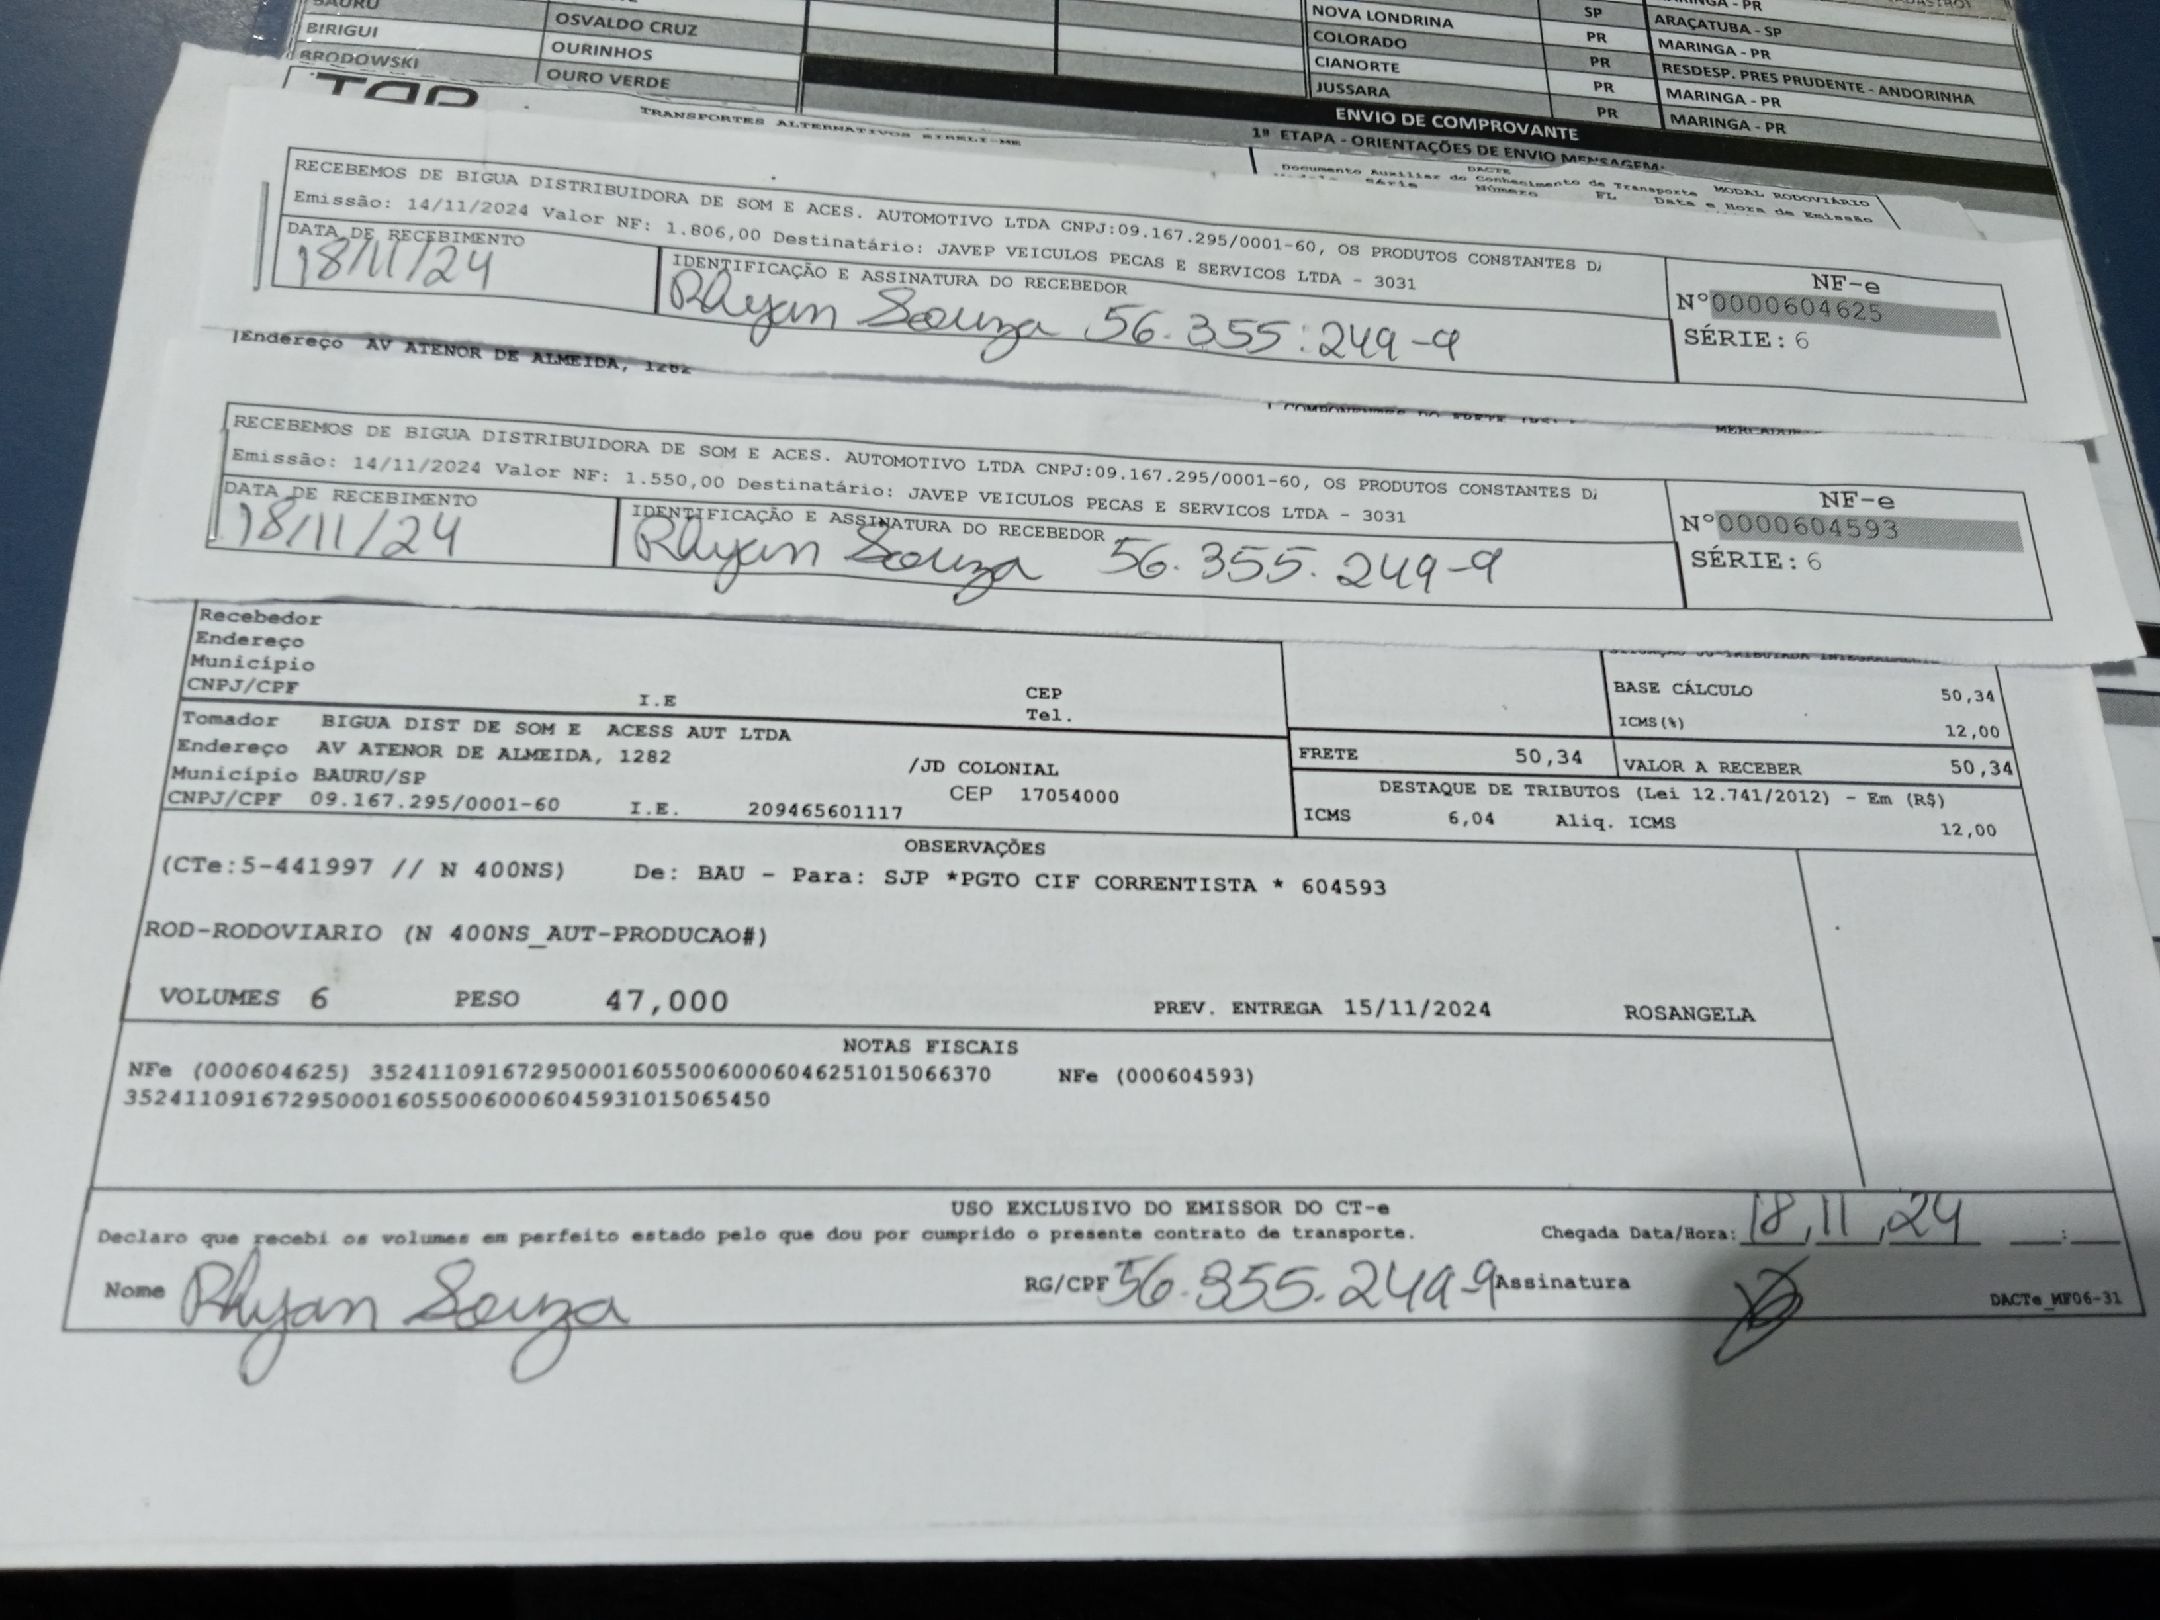 BAURU
BIRIGUI
BRODOWSKI
OSVALDO CRUZ
OURINHOS
OURO VERDE
NOVA LONDRINA
COLORADO
CIANORTE
JUSSARA
SP
PR
PR
PR
PR
MARINGA - PR
ARAÇATUBA - SP
MARINGA - PR
RESDESP. PRES PRUDENTE - ANDORINHA
MARINGA - PR
MARINGA - PR
ENVIO DE COMPROVANTE
1ª ETAPA - ORIENTAÇÕES DE ENVIO MENSAGEM:
TRANSPORTES ALTERNATIVOS EIRELI-ME
DACTE
Documento Auxiliar do Conhecimento de Transporte MODAL RODOVIÁRIO
Modelo Série Número FL Data e Hora de Emissão
RECEBEMOS DE BIGUA DISTRIBUIDORA DE SOM E ACES. AUTOMOTIVO LTDA CNPJ:09.167.295/0001-60, OS PRODUTOS CONSTANTES DA
Emissão: 14/11/2024 Valor NF: 1.806,00 Destinatário: JAVEP VEICULOS PECAS E SERVICOS LTDA - 3031
DATA DE RECEBIMENTO
18/11/24
IDENTIFICAÇÃO E ASSINATURA DO RECEBEDOR
Rhyan Souza 56.355.249-9
NF-e
N°0000604625
SÉRIE: 6
Endereço AV ATENOR DE ALMEIDA, 1282
RECEBEMOS DE BIGUA DISTRIBUIDORA DE SOM E ACES. AUTOMOTIVO LTDA CNPJ:09.167.295/0001-60, OS PRODUTOS CONSTANTES DA
Emissão: 14/11/2024 Valor NF: 1.550,00 Destinatário: JAVEP VEICULOS PECAS E SERVICOS LTDA - 3031
DATA DE RECEBIMENTO
18/11/24
IDENTIFICAÇÃO E ASSINATURA DO RECEBEDOR
Rhyan Souza 56.355.249-9
NF-e
N°0000604593
SÉRIE: 6
Recebedor
Endereço
Município
CNPJ/CPF I.E
CEP
Tel.
BASE CÁLCULO 50,34
ICMS(%) 12,00
Tomador BIGUA DIST DE SOM E ACESS AUT LTDA
Endereço AV ATENOR DE ALMEIDA, 1282 /JD COLONIAL
Município BAURU/SP CEP 17054000
CNPJ/CPF 09.167.295/0001-60 I.E. 209465601117
FRETE 50,34 VALOR A RECEBER 50,34
DESTAQUE DE TRIBUTOS (Lei 12.741/2012) - Em (R$)
ICMS 6,04 Aliq. ICMS 12,00
OBSERVAÇÕES
(CTe:5-441997 // N 400NS) De: BAU - Para: SJP *PGTO CIF CORRENTISTA * 604593
ROD-RODOVIARIO (N 400NS_AUT-PRODUCAO#)
VOLUMES 6 PESO 47,000 PREV. ENTREGA 15/11/2024 ROSANGELA
NOTAS FISCAIS
NFe (000604625) 35241109167295000160550060006046251015066370 NFe (000604593)
35241109167295000160550060006045931015065450
USO EXCLUSIVO DO EMISSOR DO CT-e
Declaro que recebi os volumes em perfeito estado pelo que dou por cumprido o presente contrato de transporte. Chegada Data/Hora: 18,11,24 __:__
Nome Rhyan Souza RG/CPF 56.355.249-9 Assinatura
DACTe_MF06-31